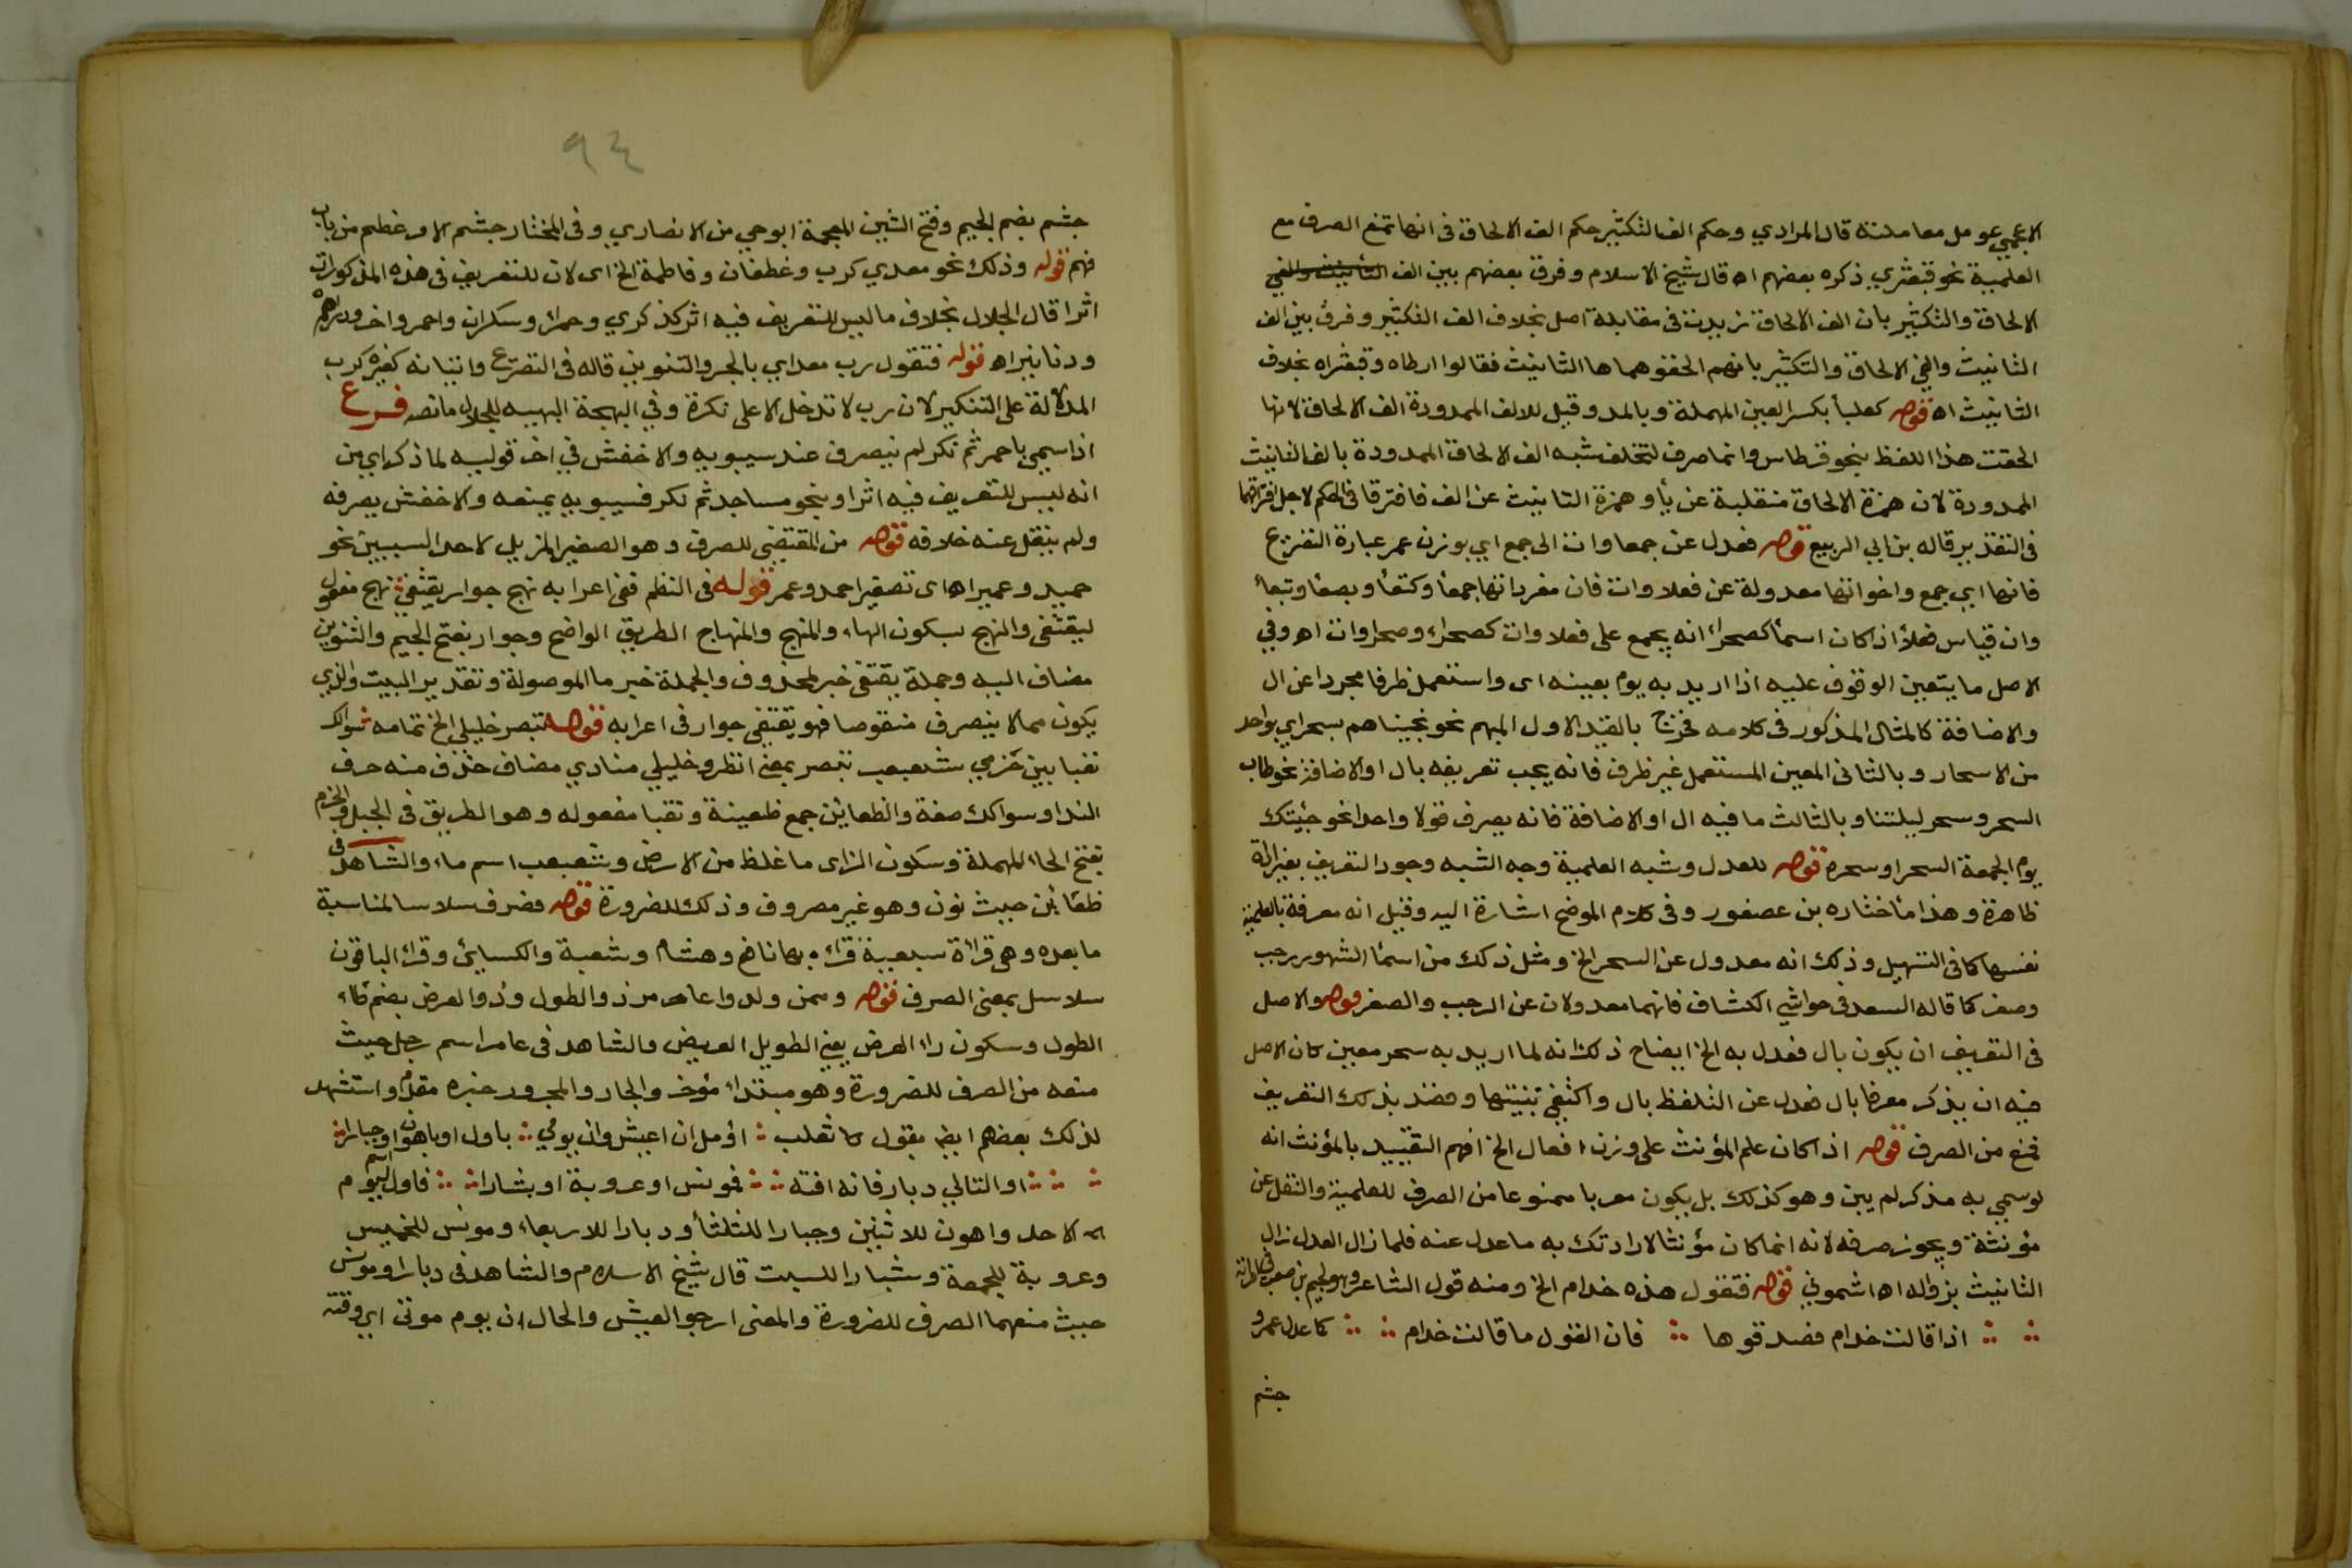 الاعجمي عومل معاملته قال المرادي وحكم الف التكثير حكم الف الالحاق في انها تمنع الصرف مع
العلمية نحو قبعثري ذكره بعضهم اه قال شيخ الاسلام وفرق بعضهم بين الف التأنيث والفي
الالحاق والتكثير بان الف الالحاق زيدت في مقابلة اصل بخلاف الف التكثير وفرق بين الف
التانيث والفي الالحاق والتكثير بانهم الحقوهما ها التانيث فقالوا ارطاه وقبعثراه بخلاف
التانيث اه قوله كعلبأ بكسر العين المهملة وبالمد وقيل للالف الممدودة الف الالحاق لانها
الحقت هذا اللفظ بنحو قرطاس وانما صرف لتخلف شبه الف الالحاق الممدودة بالف التانيث
الممدودة لان همزة الالحاق منقلبة عن يأ وهمزة التانيث عن الف فافترقا في الحكم لاجل افتراقهما
في التقدير قاله بن ابي الربيع قوله فعدل عن جمعاوات الى جمع اي بوزن عمر عبارة التفزيع
فانها اي جمع واخواتها معدولة عن فعلاوات فان مفرداتها جمعأ وكتعأ وبصعأ وتبعأ
وان قياس فعلأ اذا كان اسمأ كصحرأ انه يجمع على فعلاوات كصحراء وصحراوات اه وفي
الاصل ما يتعين الوقوف عليه اذا اريد به يوم بعينه اى واستعمل ظرفا مجردا عن ال
والاضافة كالمثال المذكور في كلامه فخرج بالقيد الاول المبهم نحو نجيناهم بسحر اي بواحد
من الاسحار وبالثاني المعين المستعمل غير ظرف فانه يجب تعريفه بال او الاضافة نحو طاب
السحر وسحر ليلتنا وبالثالث ما فيه ال او الاضافة فانه يصرف قولا واحدا نحو جئيتك
يوم الجمعة السحر او سحره قوله للعدل وشبه العلمية وجه الشبه وجود التعريف بغير الة
ظاهرة وهذا ما اختاره بن عصفور وفي كلام الموضح اشارة اليه وقيل انه معرفة بالعلمية
نفسها كما في التسهيل وذلك انه معدول عن السحر الخ ومثل ذلك من اسمأ الشهور رجب
وصفر كما قاله السعد في حواشي الكشاف فانهما معدولان عن الرجب والصفر قوله والاصل
في التعريف ان يكون بال فعدل به الخ ايضاح ذلك انه لما اريد به سحر معين كان الاصل
فيه ان يذكر معرفا بال فعدل عن التلفظ بال واكتفي بنيتها وقصد بذلك التعريف
فمنع من الصرف قوله اذا كان علم المؤنث على وزن افعال الخ افهم التقييد بالمؤنث انه
لو سمي به مذكر لم يبن وهو كذلك بل يكون معربا ممنوعا من الصرف للعلمية والنقل عن
مؤنثة ويجوز صرفه لانه انما كان مؤنثا لارادتك به ما عدل عنه فلما زال العدل زال
التانيث بزواله اه اشموني قوله فتقول هذه حذام الخ ومنه قول الشاعر وهو لجيم بن صعب في امراته
اذا قالت حذام فصدقوها فان القول ما قالت حذام كما عدل عمرو
جشم
٩٤
جشم بضم الجيم وفتح الشين المعجمة ابو حي من الانصاري وفي المختار جشم الامر غطم من باب
فهم قوله وذلك نحو معدي كرب وغطفان وفاطمة الخ اى لان للتعريف في هذه المذكورات
اثرا قال الجلال بخلاف ما ليس للتعريف فيه اثر كذكري وحمرأ وسكران واحمر واخر ودراهم
ودنانير اه قوله فتقول رب معداي بالجر والتنوين قاله في التصريح واتيانه كغيره كرب
الدلالة على التنكير لان رب لا تدخل الا على نكرة وفي البهجة البهيه للجلال ما نصه فرع
اذا سمي باحمر ثم نكر لم ينصرف عند سيبويه والاخفش في اخر قوليه لما ذكر اي من
انه ليس للتعريف فيه اثر او بنحو مساجد ثم نكر فسيبويه يمنعه والاخفش يصرفه
ولم ينقل عنه خلافه قوله من المقتضي للصرف وهو التصغير المزيل لاحد السببين نحو
حميد وعمير اه اى تصغير احمد وعمر قوله في النظم ففي اعرابه نهج جوار يقتفي نهج مفعول
ليقتفى والنهج بسكون الهاء والمنهج والمنهاج الطريق الواضح وجوار بفتح الجيم والتنوين
مضاف اليه وجملة يقتفي خبر لمحذوف والجملة خبر ما الموصولة وتقدير البيت والذي
يكون مما لا ينصرف منقوصا فهو يقتفي جوار في اعرابه قوله تبصر خليلي الخ تمامه سوالك
نقبا بين حزمي شعبعب تبصر بمعنى انظر وخليلي منادي مضاف حذف منه حرف
الندا وسوالك صفة والظعائن جمع ظعينة ونقبا مفعوله وهو الطريق في الجبل والحزم
بفتح الحاء المهملة وسكون الزاى ما غلظ من الارض وشعبعب اسم ماء والشاهد في
ظعائن حيث نون وهو غير مصروف وذلك للضرورة قوله فصرف سلاسا لمناسبة
ما بعده وهى قرأة سبعية قرأ بها نافع وهشام وشعبة والكسائي وقرأ الباقون
سلاسل بمعنى الصرف قوله وممن ولدوا عامر ذو الطول وذو العرض بضم طاء
الطول وسكون راء العرض يعني الطويل العريض والشاهد في عامر اسم رجل حيث
منعه من الصرف للضرورة وهو مبتداء مؤخر والجار والمجرور خبره مقدم واستشهد
لذلك بعضهم ايضا بقول كا ثعلب اؤمل ان اعيش وان يومي باول او باهون او جبار
او التالي دبار فانه افته فمونس او عروبة او شبار فاول اسم ليوم
الاحد واهون للاثنين وجبارا للثلثأ ودبارا للاربعاء ومونس للخميس
وعروبة للجمعة وشبارا للسبت قال شيخ الاسلام والشاهد في دبار ومونس
حيث منعهما الصرف للضرورة والمعنى ارجو العيش والحال ان يوم موتى اي وقته